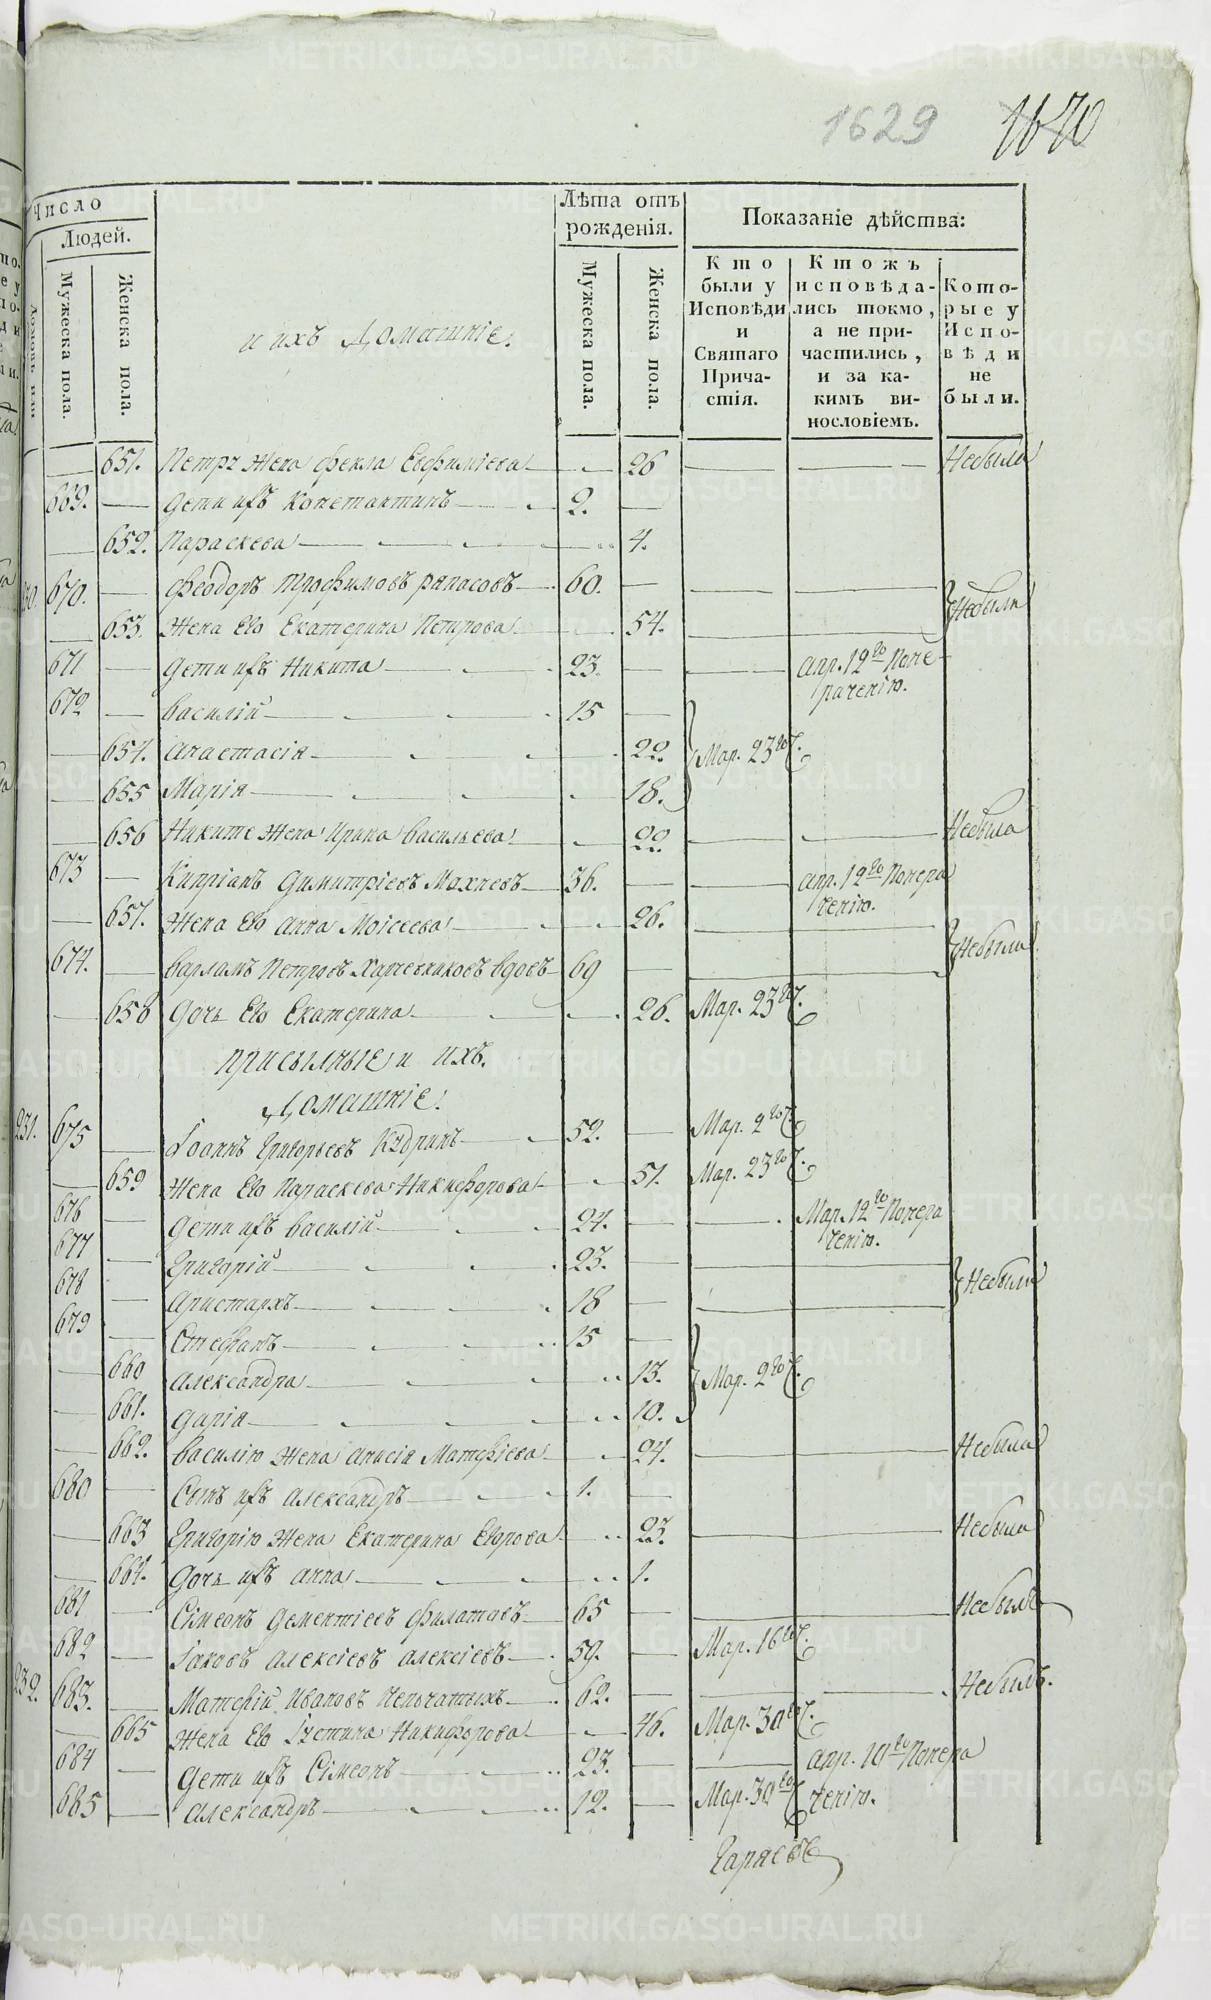 1629 1670
Число
Людей.
Мужеска пола.
Женска пола.
Лѣта отъ
рожденія.
Мужеска пола.
Женска пола.
Показаніе дѣйства:
Кто
были у
Исповѣди
и
Святаго
Прича-
стія.
Ктожъ
исповѣда-
лись токмо,
а не при-
частились,
и за ка-
кимъ ви-
нословіемъ.
Кото-
рые у
Испо-
вѣди
не
были.
и ихъ домашніе.
651. Петръ жена Фекла Евфиміева 26 Небыли
669. Дети ихъ Константинъ 2.
652. Параскева 4.
230. 670. Феодоръ Трофимовъ 60.
653. Жена Его Екатерина Петрова 54. Небыли
671 Дети ихъ Никита 23. апр. 12го Поне
рачению.
672 василій 15
654. анастасія 22. Мар. 23го
655 Марія 18.
656 Никите жена Ирина васильева 22. Небыла
673 Кипріанъ Димитріевъ Махневъ 36. апр. 12го Понера
чению.
657. Жена Его анна Моісеева 26.
674. варламъ Петровъ Харчевниковъ вдовъ 69 Небыли
658 Дочь Его Екатерина 26. Мар. 23го
присыльные и ихъ.
домашніе.
231. 675 Іоаннъ Григорьевъ Кудринъ 52. Мар. 2го
659 Жена Его Параскева Никифорова 51. Мар. 23го
676 Дети ихъ василій 24. Мар. 12го Понера
чению.
677 Григорій 23.
678 Аристархъ 18 Небыли
679 Стефанъ 15
660 Александра 13. Мар. 2го
661. Дарія 10.
662. василию жена анисія Матфіева 24. Небыла
680 Сынъ ихъ александръ 1.
663 Григорію жена Екатерина Егорова 23. Небыла
664. Дочь ихъ анна 1.
681 Сімеонъ Дементіевъ Филатовъ 65 Небылъ
682 Іаковъ алексіевъ алексіевъ 59. Мар. 16го
232. 683. Матфій Ивановъ 62. Небылъ.
665 Жена Его Іустина Никифорова 46. Мар. 30го
684 Дети ихъ Сімеонъ 23. апр. 10го Понера
685 александръ 12. Мар. 30го чению.